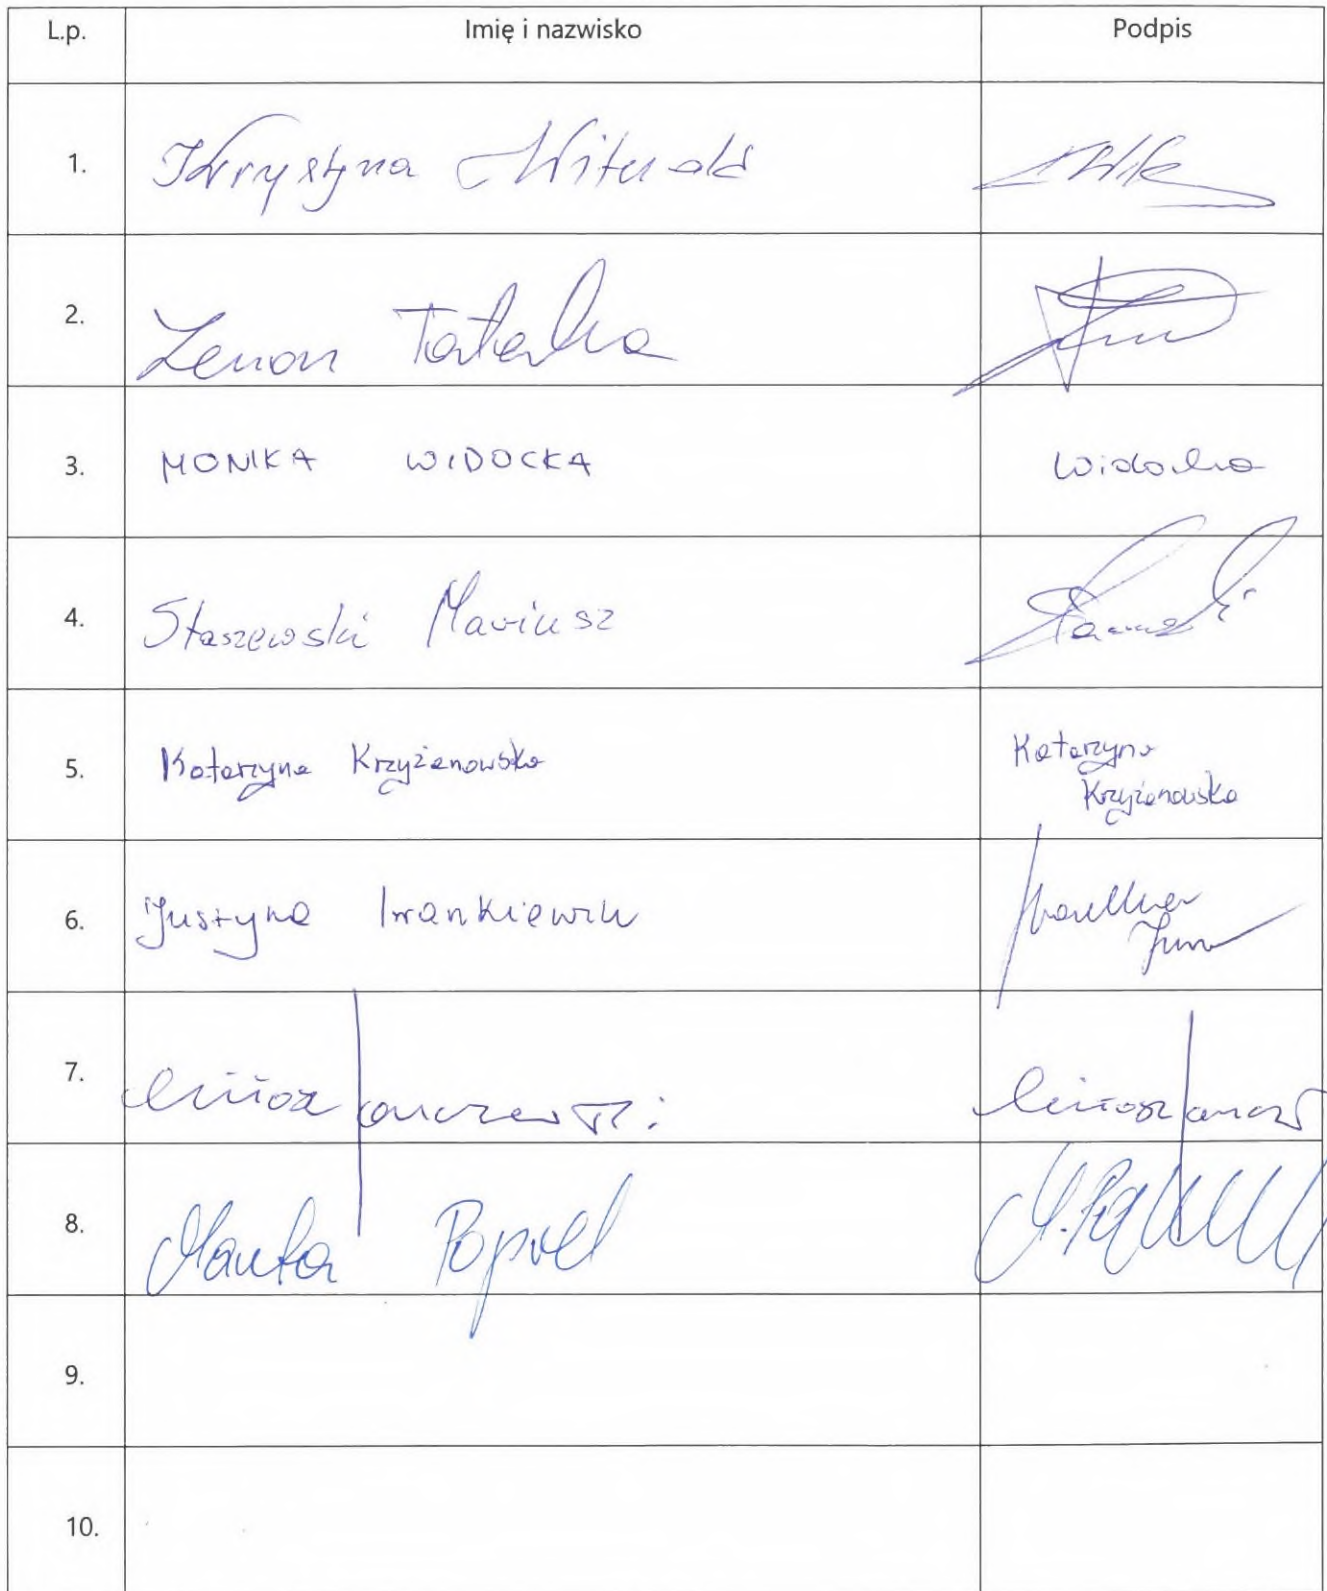 L.p. Imię i nazwisko Podpis
1. Krystyna
2. Zenon Tatarka
3. MONIKA WIDOCKA Widocka
4. Staszewski Mariusz
5. Katarzyna Krzyżanowska Katarzyna
Krzyżanowska
6. Justyna Iwankiewicz
7. Miłosz Janczewski Miłosz
8. Marta Popiel
9.
10.